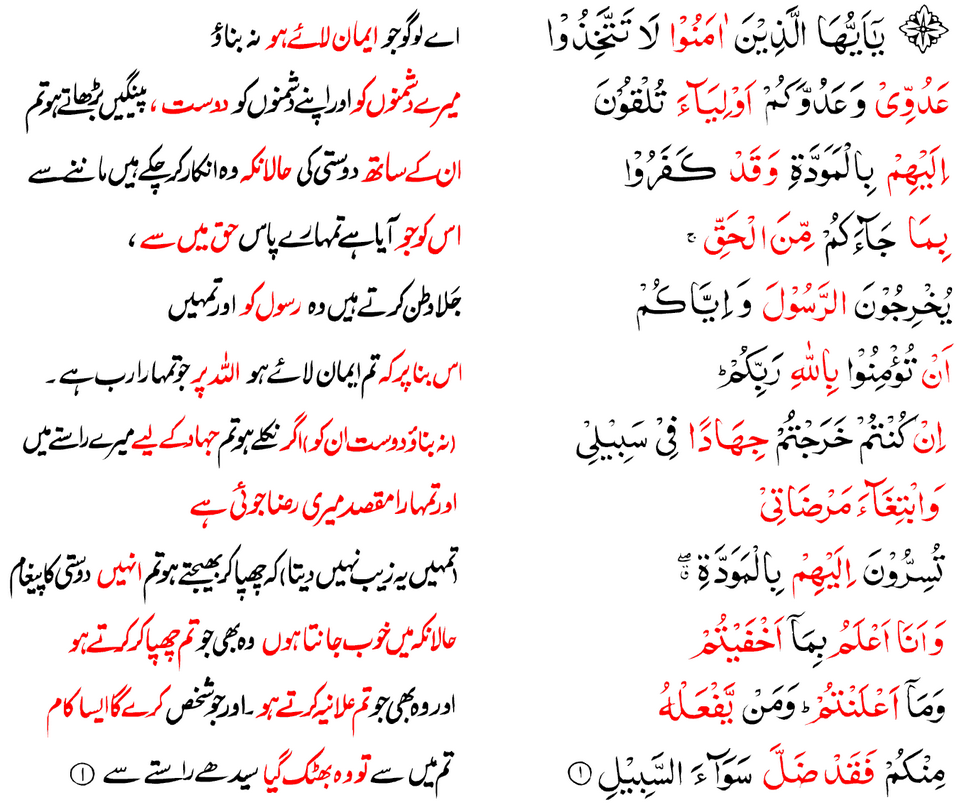 يٰۤاَيُّهَا الَّذِيْنَ اٰمَنُوْا لَا تَتَّخِذُوْا اے لوگو جو ایمان لائے ہو نہ بناؤ
عَدُوِّيْ وَعَدُوَّكُمْ اَوْلِيَآءَ تُلْقُوْنَ میرے دشمنوں کو اور اپنے دشمنوں کو دوست ، پینگیں بڑھاتے ہو تم
اِلَيْهِمْ بِالْمَوَدَّةِ وَقَدْ كَفَرُوْا ان کے ساتھ دوستی کی حالانکہ وہ انکار کر چکے ہیں ماننے سے
بِمَا جَآءَكُمْ مِّنَ الْحَقِّ ۚ اس کو جو آیا ہے تمہارے پاس حق میں سے ،
يُخْرِجُوْنَ الرَّسُوْلَ وَاِيَّاكُمْ جَلا وطن کرتے ہیں وہ رسول کو اور تمہیں
اَنْ تُؤْمِنُوْا بِاللّٰهِ رَبِّكُمْ ؕ اس بنا پر کہ تم ایمان لائے ہو اللہ پر جو تمہارا رب ہے ۔
اِنْ كُنْتُمْ خَرَجْتُمْ جِهَادًا فِيْ سَبِيْلِيْ (نہ بناؤ دوست ان کو) اگر نکلے ہو تم جہاد کے لیے میرے راستے میں
وَابْتِغَآءَ مَرْضَاتِيْ اور تمہارا مقصد میری رضا جوئی ہے
تُسِرُّوْنَ اِلَيْهِمْ بِالْمَوَدَّةِ ۖ (تمہیں یہ زیب نہیں دیتا) کہ چھپا کر بھیجتے ہو تم انہیں دوستی کا پیغام
وَاَنَا اَعْلَمُ بِمَاۤ اَخْفَيْتُمْ حالانکہ میں خوب جانتا ہوں وہ بھی جو تم چھپا کر کرتے ہو
وَمَاۤ اَعْلَنْتُمْ ؕ وَمَنْ يَّفْعَلْهُ اور وہ بھی جو تم علانیہ کرتے ہو ۔ اور جو شخص کرے گا ایسا کام
مِنْكُمْ فَقَدْ ضَلَّ سَوَآءَ السَّبِيْلِ ۝۱ تم میں سے تو وہ بھٹک گیا سیدھے راستے سے ۝۱